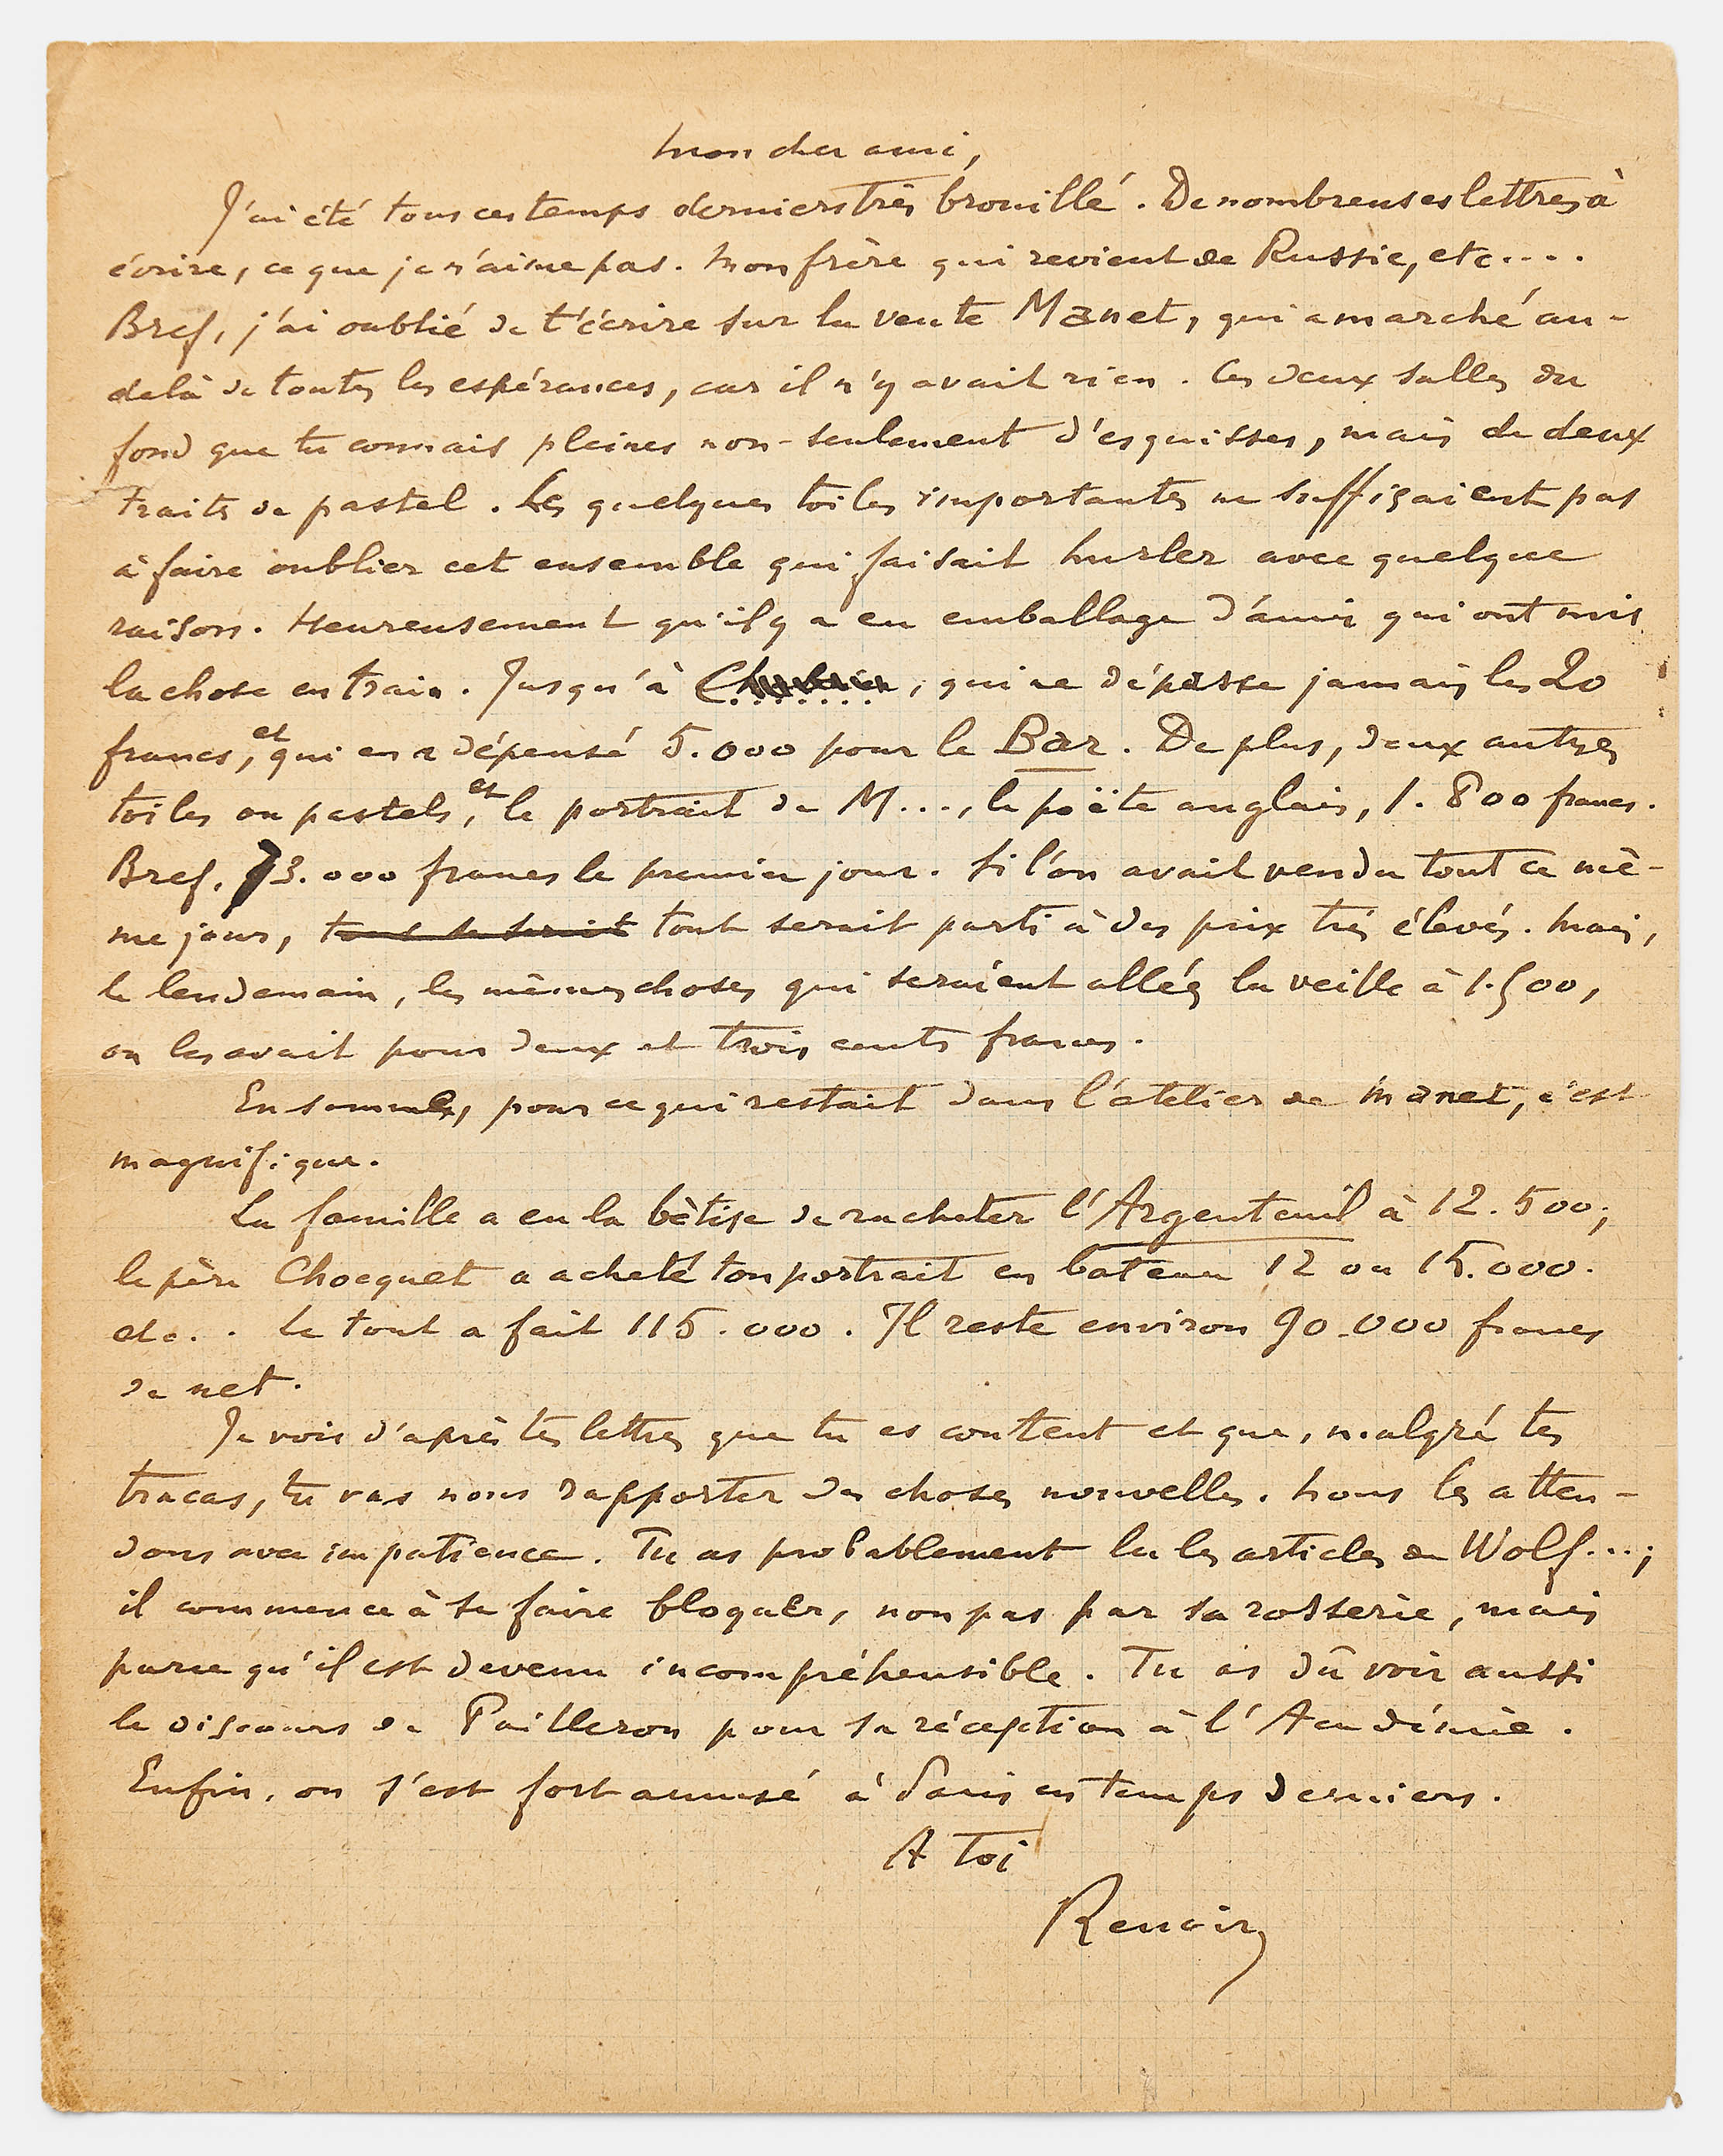 Mon cher ami,
J'ai été tous ces temps derniers très brouillé. De nombreuses lettres à
écrire, ce que je n'aime pas. Mon frère qui revient de Russie, etc....
Bref, j'ai oublié de t'écrire sur la vente Manet, qui a marché au-
delà de toutes les espérances, car il n'y avait rien. Ces deux salles du
fond que tu connais pleines non-seulement d'esquisses, mais de deux
traits de pastel. Les quelques toiles importantes ne suffisaient pas
à faire oublier cet ensemble qui faisait hurler avec quelque
raison. Heureusement qu'il y a eu emballage d'amis qui ont mis
la chose en train. Jusqu'à , qui ne dépasse jamais les 20
francs, et qui en a dépensé 5.000 pour le Bar. De plus, deux autres
toiles ou pastels, et le portrait de M..., le poëte anglais, 1.800 francs.
Bref, 73.000 francs le premier jour. Si l'on avait vendu tout ce mê-
me jour, tout serait parti à des prix très élevés. Mais,
le lendemain, les mêmes choses qui seraient allées la veille à 1.500,
on les avait pour deux et trois cents francs.
En somme, pour ce qui restait dans l'atelier de Manet, c'est
magnifique.
La famille a eu la bêtise de racheter l'Argenteuil à 12.500;
le père Chocquet a acheté ton portrait en bateau 12 ou 15.000.
etc.. Le tout a fait 115.000. Il reste environ 90.000 francs
de net.
Je vois d'après tes lettres que tu es content et que, malgré tes
tracas, tu vas nous rapporter des choses nouvelles. Nous les atten-
dons avec impatience. Tu as probablement lu les articles de Wolf...;
il commence à se faire bloquer, non pas par sa rosserie, mais
parce qu'il est devenu incompréhensible. Tu as dû voir aussi
le discours de Pailleron pour sa réception à l'Académie.
Enfin, on s'est fort amusé à Paris ces temps derniers.
A toi
Renoir